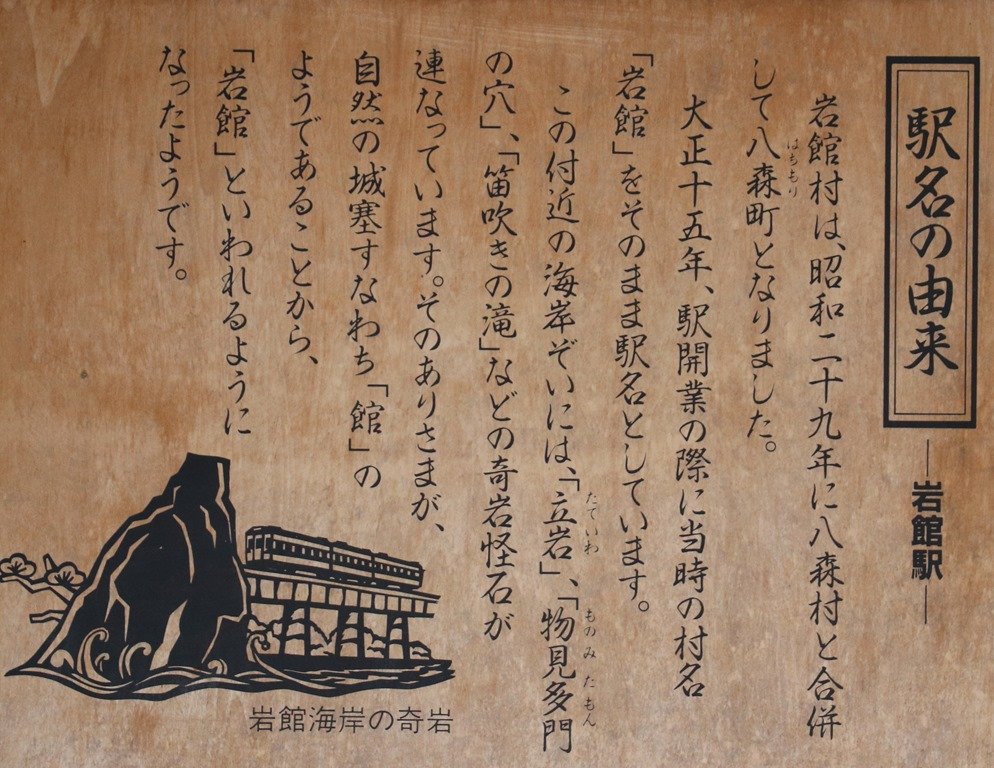 駅名の由来
―岩館駅―
岩館村は、昭和二十九年に八森村と合併
して八森町となりました。
はちもり
大正十五年、駅開業の際に当時の村名
「岩館」をそのまま駅名としています。
この付近の海岸ぞいには、「立岩」、「物見多門
たていわ
ものみたもん
の穴」、「笛吹きの滝」などの奇岩怪石が
連なっています。そのありさまが、
自然の城塞すなわち「館」の
ようであることから、
「岩館」といわれるように
なったようです。
岩館海岸の奇岩